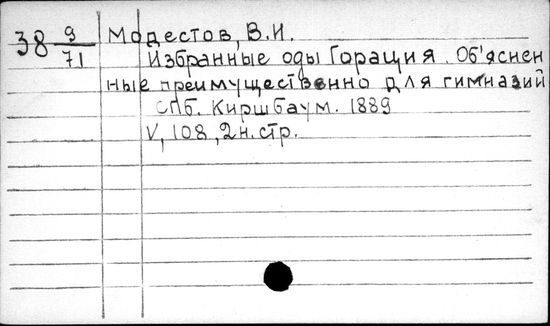 38 9/71 Модестов, В.И.
Избранные оды Горация. Об'яснен
ные преимущественно для гимназий
СПб. Киршбаум. 1889
V, 108, 2 н. стр.